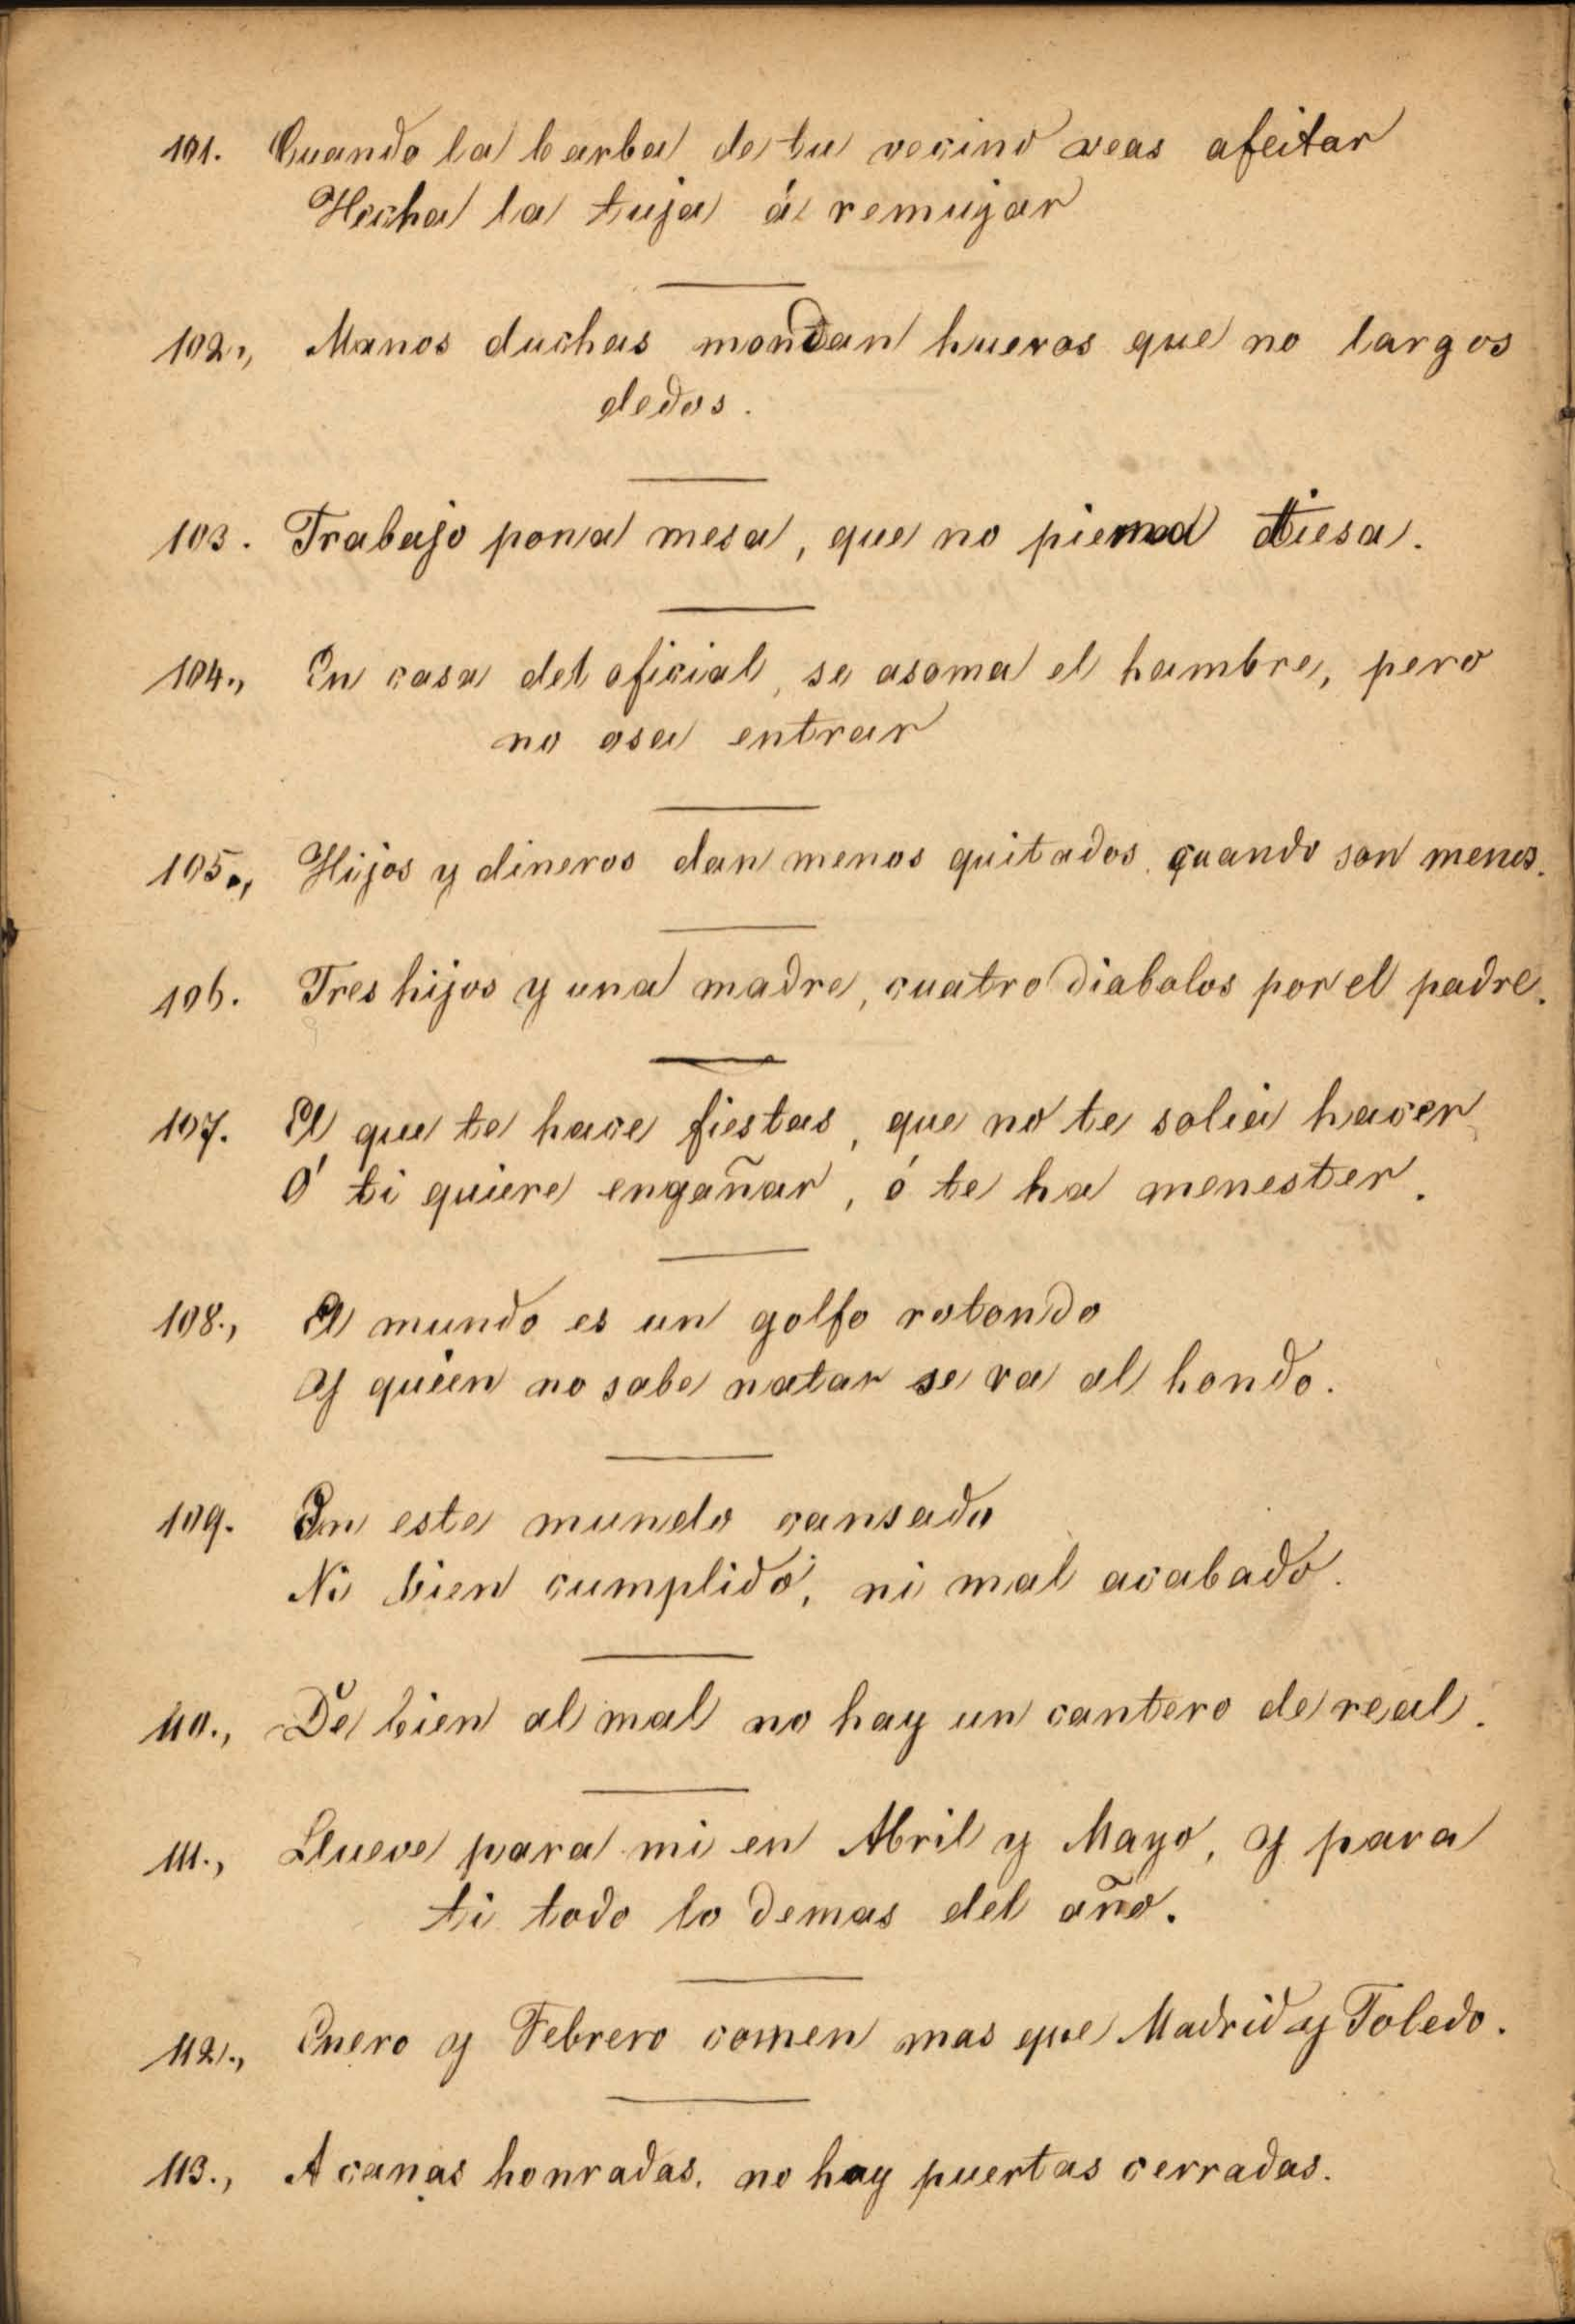 101. Cuando la barba de tu vecino veas afeitar
Hecha la tuja á remujar
102., Manos duchas mondan hueros que no largos
dedos.
103. Trabajo pona mesa, que no pierna tiesa.
104., En casa del oficial, se asoma el hambre, pero
no osa entrar
105., Hijos y dineros dan menos quitados quando son menos.
106. Tres hijos y una madre, cuatro diabolos por el padre.
107. El que te hace fiestas, que no te solia hacer
Ó ti quiere engañar, ó te ha menester.
108., El mundo es un golfo rotondo
Y quien no sabe natar se va al hondo.
109. En este mundo cansado
Ni bien cumplido, ni mal acabado.
110., De bien al mal no hay un cantero de real.
111., Llueve para mi en Abril y Mayo, y para
ti todo lo demas del año.
112., Enero y Febrero comen mas que Madrid y Toledo.
113., A canas honradas, no hay puertas cerradas.